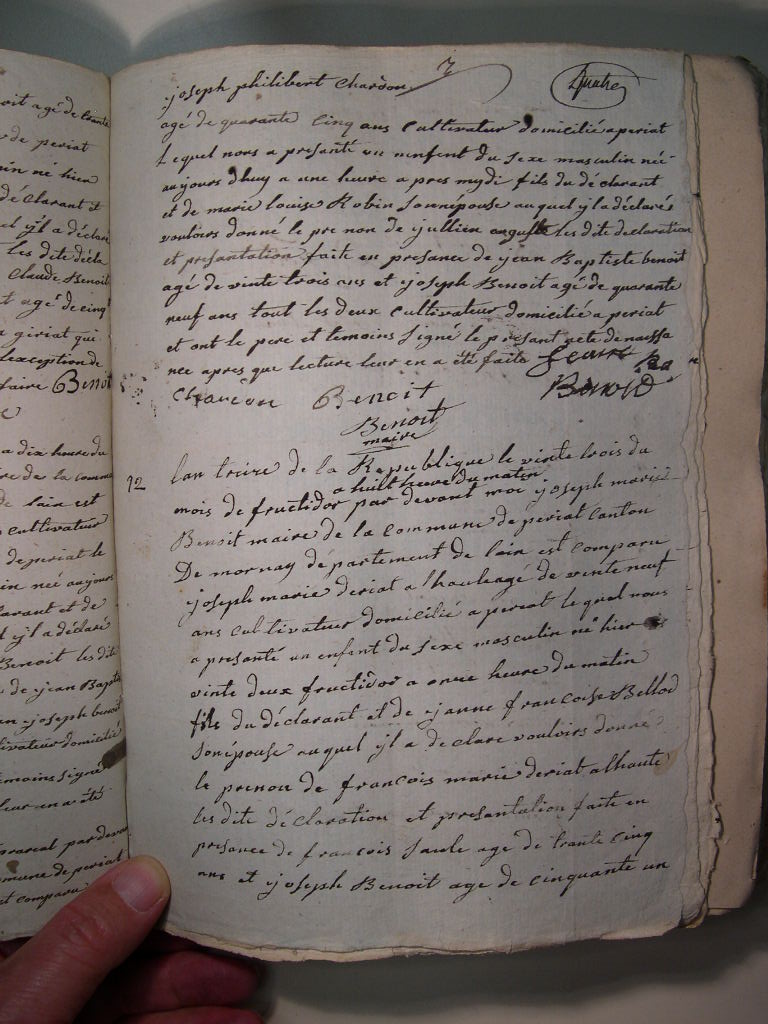 oit agé de trante
de periat
in né hier
déclarant et
el y'l a déclaré
les dite décla
Claude Benoit
t agé de cinq
a giriat qui
lexception de
faire Benoit
a dix heure du
re de la comm
de lain est
cultivateur
de periat le
in neé aujour
larant et de
y'l a déclaré
Benoit les dit
de jean Bapt
n joseph benoit
tivateur domicilié
emoins signé
leur en a été
prareal par deva
mmune de periat
st comparu
joseph philibert Chardon 7 quatre
agé de quarante cinq ans cultivateur domicilié a periat
lequel nous a presanté un enfent du sexe masculin neé
aujours dhuy a une heure a pres mydi fils du déclarant
et de marie louise Robin sonnépouse au quel y'l a déclaré
vouloirs donné le pre non de jullien auguste les dite declaration
et presantation faite en presance de jean Baptiste benoit
agé de vinte trois ans et joseph Benoit agé de quarante
neuf ans tout les deux cultivateur domicilié a periat
et ont le pere et temoins signé le présant acte de naissa
nce apres que lecture leur en a été faite
Benoit
Benoit
maire
12 lan treize de la Republique le vinte trois du
a huilt heure du matin
mois de fructidor par devant moi joseph marie
Benoit maire de la commune de periat canton
De mornay département de lain est comparu
joseph marie deriat alhauteagé de vinte neuf
ans cultivateur domicilié a periat le quel nous
a presanté un enfant du sexe masculin né hier
vinte deux fructidor a onze heure du matin
fils du déclarant et de janne francoise Bellod
sonépouse au quel y'l a declaré vouloirs donné
le prenon de francois marie deriat alhaute
les dite déclaration et presantation faite en
presance de francois saule age de trante cinq
ans et joseph Benoit age de cinquante un